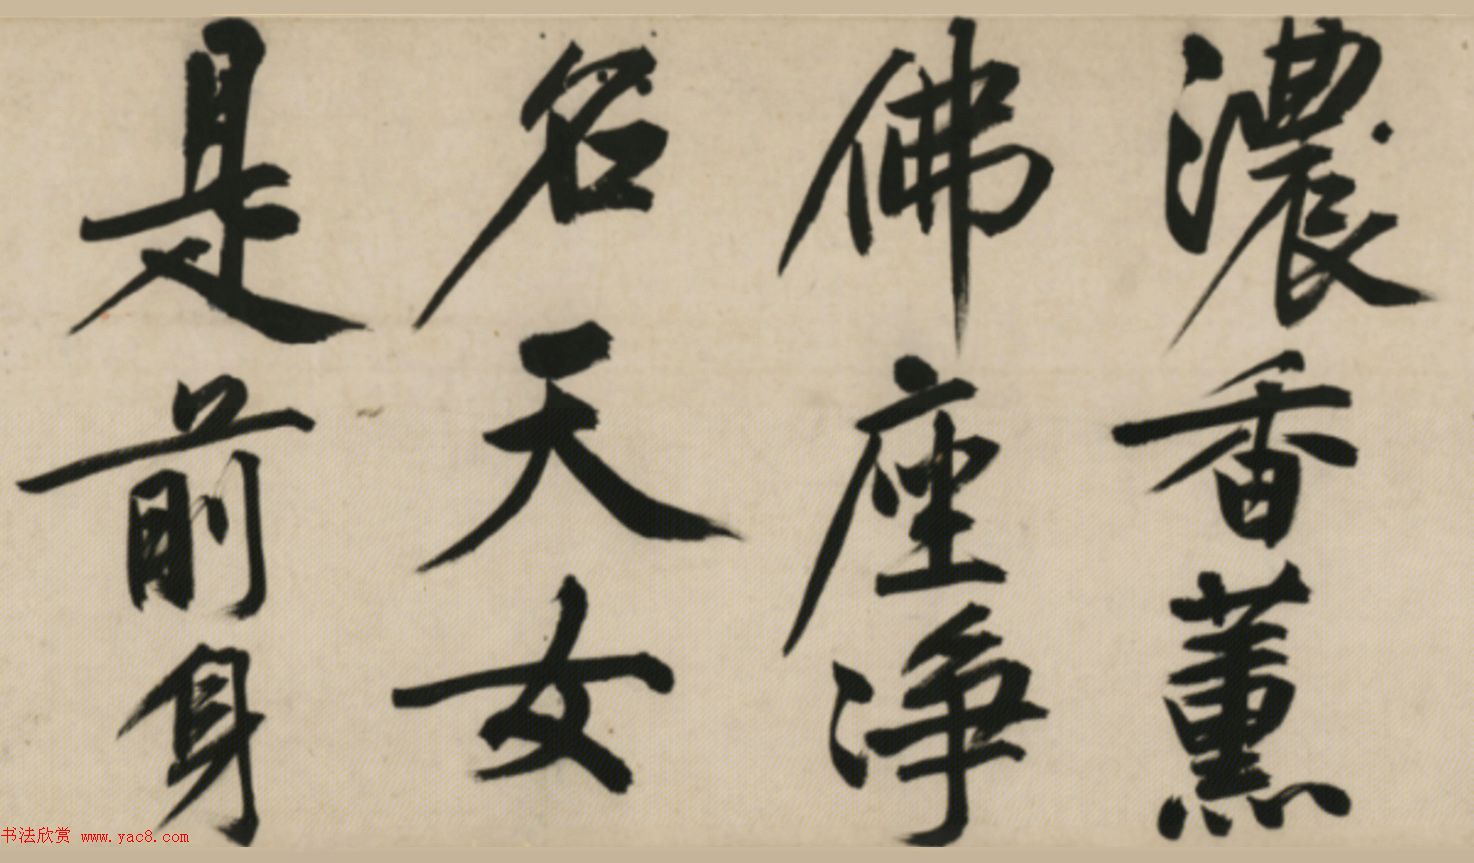 濃香薰
佛座淨
名天女
是前身
书法欣赏 www.yac8.com